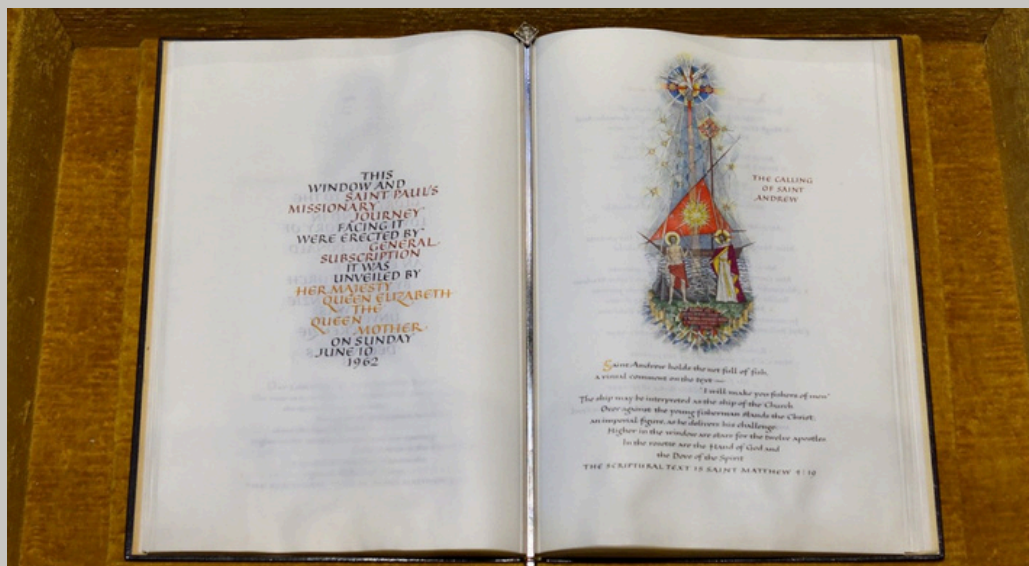 THIS
WINDOW AND
SAINT PAUL'S
MISSIONARY
JOURNEY
FACING IT
WERE ERECTED BY
GENERAL
SUBSCRIPTION
IT WAS
UNVEILED BY
HER MAJESTY
QUEEN ELIZABETH
THE
QUEEN
MOTHER
ON SUNDAY
JUNE 10
1962
THE CALLING
OF SAINT
ANDREW
Saint Andrew holds the net full of fish,
a visual comment on the text —
"I will make you fishers of men"
The ship may be interpreted as the ship of the Church
Over against the young fisherman stands the Christ:
an imperial figure, as he delivers his challenge.
Higher in the window are stars for the twelve apostles
In the rosette are the Hand of God and
the Dove of the Spirit
THE SCRIPTURAL TEXT IS SAINT MATTHEW 4:19